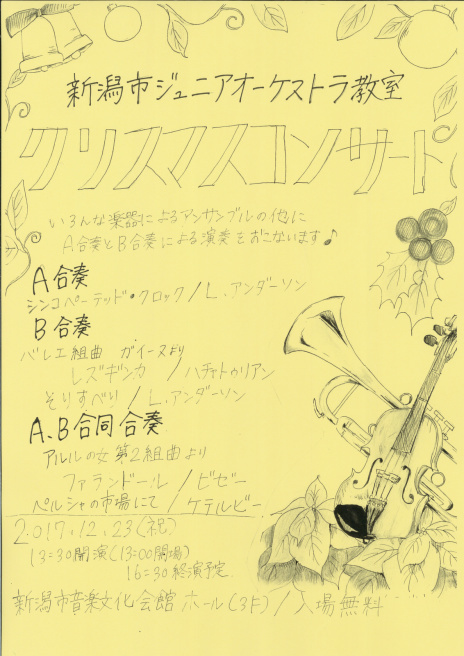 新潟市ジュニアオーケストラ教室
クリスマスコンサート
いろんな楽器によるアンサンブルの他に
A合奏とB合奏による演奏をおこないます♪
A合奏
シンコペーテッド・クロック/L.アンダーソン
B合奏
バレエ組曲 ガイーヌより
レズギンカ/ハチャトゥリアン
そりすべり/L.アンダーソン
A、B合同合奏
アルルの女第2組曲より
ファランドール/ビゼー
ペルシャの市場にて/ケテルビー
2017.12.23(祝)
13:30開演(13:00開場)
16:30終演予定
新潟市音楽文化会館 ホール(3F)/入場無料